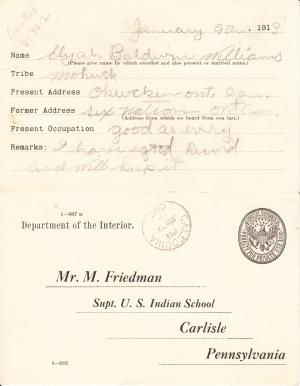 January 9th, 1913
Name Elijah Baldwin Williams
(Please give name by which enrolled and also present or married name.)
Tribe mohuck
Present Address ont Can.
Former Address six nation ont Can
(Address from which we heard from you last.)
Present Occupation good as erry
Remarks: I have a good Record
and will keep it
1—867 a
Department of the Interior.
CALEDONIA
ONT
Mr. M. Friedman
Supt. U. S. Indian School
Carlisle
Pennsylvania